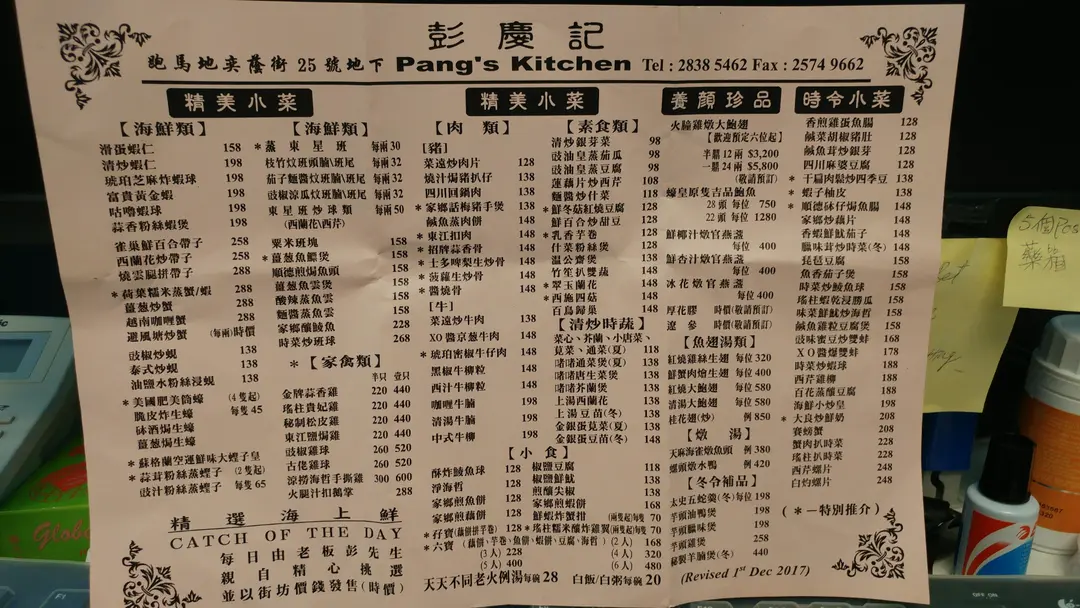 彭慶記
跑馬地奕蔭街 25 號地下 Pang's Kitchen Tel : 2838 5462 Fax : 2574 9662
精美小菜
【海鮮類】
滑蛋蝦仁 158
清炒蝦仁 198
琥珀芝麻炒蝦球 198
富貴黃金蝦 198
咕嚕蝦球 198
蒜香粉絲蝦煲 198
雀巢鮮百合帶子 258
西蘭花炒帶子 258
燒雲腿拼帶子 288
* 荷葉糯米蒸蟹/蝦 288
薑葱炒蟹 288
越南咖喱蟹 288
避風塘炒蟹 (每兩)時價
豉椒炒蜆 138
泰式炒蜆 138
油鹽水粉絲浸蜆 138
* 美國肥美筒蠔 (4隻起)
脆皮炸生蠔 每隻 45
砵酒焗生蠔
薑葱焗生蠔
* 蘇格蘭空運鮮味大蟶子皇
* 蒜茸粉絲蒸蟶子 (2隻起)
豉汁粉絲蒸蟶子 每隻 65
【海鮮類】
* 蒸東星班 每兩 30
枝竹炆班頭腩\班尾 每兩 32
茄子麵醬炆班腩\班尾 每兩 32
豉椒涼瓜炆班腩\班尾 每兩 32
東星班炒球類 每兩 50
(西蘭花\西芹)
粟米班塊 158
* 薑葱魚鰾煲 158
順德煎焗魚頭 158
薑葱魚雲煲 158
酸辣蒸魚雲 158
麵醬蒸魚雲 158
家鄉釀鯪魚 228
時菜炒班球 268
* 【家禽類】
半只 壹只
金牌蒜香雞 220 440
瑤柱貴妃雞 220 440
秘制松皮雞 220 440
東江鹽焗雞 220 440
豉椒雞煲 260 520
古佬雞煲 260 520
涼撈海哲手撕雞 300 600
火腿汁扣鵝掌 288
精選海上鮮
CATCH OF THE DAY
每日由老板彭先生
親自精心挑選
並以街坊價錢發售(時價)
精美小菜
【肉 類】
[豬]
菜遠炒肉片 128
燒汁焗豬扒仔 148
四川回鍋肉 148
* 家鄉話梅豬手煲 148
鹹魚蒸肉餅 148
* 東江扣肉 148
* 招牌蒜香骨 148
* 士多啤梨生炒骨 148
* 菠蘿生炒骨 148
* 醬燒骨 148
[牛]
菜遠炒牛肉 138
XO 醬京葱牛肉 148
* 琥珀蜜椒牛仔肉 148
黑椒牛柳粒 148
西汁牛柳粒 148
咖喱牛腩 198
清湯牛腩 198
中式牛柳 198
【素食類】
清炒銀芽菜 98
豉油皇蒸茄瓜 98
豉油皇蒸豆腐 98
蓮藕片炒西芹 108
麵醬炒什菜 118
* 鮮冬菇紅燒豆腐 128
鮮百合炒甜豆 128
* 乳香芋卷 128
什菜粉絲煲 128
溫公齋煲 138
竹笙扒雙蔬 148
* 翠玉蘭花 148
* 西施四菇 148
百鳥歸巢 148
【清炒時蔬】
菜心、芥蘭、小唐菜、
莧菜、通菜(夏) 118
啫啫通菜煲(夏) 138
啫啫唐生菜煲 138
啫啫芥蘭煲 138
上湯西蘭花 138
上湯豆苗(冬) 138
金銀蛋莧菜(夏) 138
金銀蛋豆苗(冬) 148
【小食】
酥炸鯪魚球 128
淨海哲 128
家鄉煎魚餅 128
家鄉煎藕餅 128
* 孖寶(藕餅拼芋卷) 128
* 六寶 (藕餅、芋卷、魚餅、蝦餅、豆腐、海哲) (2人) 168
(3人) 228 (4人) 320
(5人) 400 (6人) 480
椒鹽豆腐 118
椒鹽鮮魷 138
煎釀尖椒 138
家鄉煎蝦餅 168
鮮蝦炸蟹扣 (兩隻起)每隻 70
* 瑤柱糯米釀炸雞翼 (兩隻起)每隻 70
天天不同老火例湯 每碗 28 白飯/白粥每碗 20
養顏珍品
火朣雞燉大鮑翅
【歡迎預定六位起】
半隻 12 兩 $3,200
一隻 24 兩 $5,800
(敬請預訂)
蠔皇原隻吉品鮑魚
28 頭 每位 750
22 頭 每位 1280
鮮椰汁燉官燕盞
每位 400
鮮杏汁燉官燕盞
每位 400
冰花燉官燕盞
每位 400
厚花膠 時價(敬請預訂)
遼參 時價(敬請預訂)
【魚翅湯類】
紅燒雞絲生翅 每位 320
鮮蟹肉燴生翅 每位 400
紅燒大鮑翅 每位 580
清湯大鮑翅 每位 580
桂花翅(炒) 例 850
【燉 湯】
天麻海雀燉魚頭 例 380
螺頭燉水鴨 例 420
【冬令補品】
太史五蛇羹(冬) 每位 198
芋頭油鴨煲 198
芋頭臘味煲 198
芋頭雞煲 258
秘製羊腩煲(冬) 440
(Revised 1st Dec 2017)
時令小菜
香煎雞蛋魚腸 128
鹹菜胡椒豬肚 128
鹹魚茸炒銀芽 128
四川麻婆豆腐 128
* 干扁肉鬆炒四季豆 138
* 蝦子柚皮 138
* 順德砵仔焗魚腸 148
家鄉炒藕片 148
香蝦鮮魷茄子 148
臘味茸炒時菜(冬) 148
琵琶豆腐 158
魚香茄子煲 158
時菜炒鯪魚球 158
瑤柱蝦乾浸勝瓜 158
味菜鮮魷炒海哲 158
鹹魚雞粒豆腐煲 158
豉味蜜豆炒雙蚌 168
XO 醬爆雙蚌 178
時菜炒蝦球 188
西芹雞柳 158
百花蒸釀豆腐 188
海鮮小炒皇 198
* 大良炒鮮奶 208
賽螃蟹 208
蟹肉扒時菜 228
瑤柱扒時菜 228
西芹螺片 248
白灼螺片 248
( * －特別推介 )
5個
藥箱
Globe